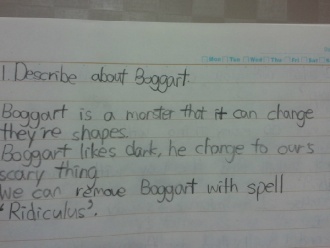 Mon Tue Wed Thu Fri Sat
1. Describe about Boggart
Boggart is a monster that it can change
they're shapes.
Boggart likes dark, he change to ours
scary thing
We can remove Boggart with spell
'Ridiculus'.